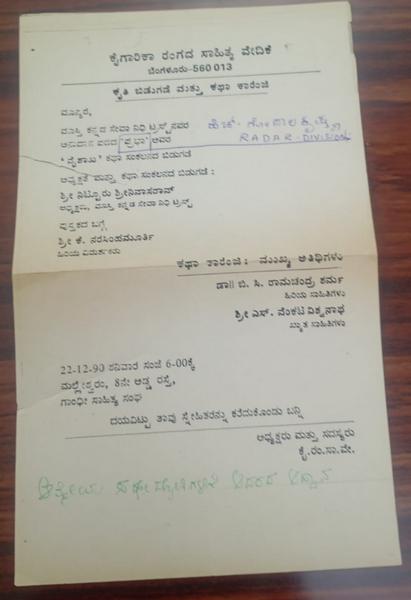 ಕೈಗಾರಿಕಾ ರಂಗದ ಸಾಹಿತ್ಯ ವೇದಿಕೆ
ಬೆಂಗಳೂರು-560 013
ಕೃತಿ ಬಿಡುಗಡೆ ಮತ್ತು ಕಥಾ ಕಾರಂಜಿ
ಮಾನ್ಯರೆ,
ಮಾಸ್ತಿ ಕನ್ನಡ ಸೇವಾ ನಿಧಿ ಟ್ರಸ್ಟ್‌ನವರ
ಅನುದಾನ ಪಡೆದ 'ಪ್ರಭಾ' ಅವರ
RADAR-DIVISION
'ವೈಶಾಖ' ಕಥಾ ಸಂಕಲನದ ಬಿಡುಗಡೆ
ಅಧ್ಯಕ್ಷತೆ ಮತ್ತು ಕಥಾ ಸಂಕಲನದ ಬಿಡುಗಡೆ :
ಶ್ರೀ ನಿಟ್ಟೂರು ಶ್ರೀನಿವಾಸರಾವ್
ಅಧ್ಯಕ್ಷರು, ಮಾಸ್ತಿ ಕನ್ನಡ ಸೇವಾ ನಿಧಿ ಟ್ರಸ್ಟ್
ಪುಸ್ತಕದ ಬಗ್ಗೆ
ಶ್ರೀ ಕೆ. ನರಸಿಂಹಮೂರ್ತಿ
ಹಿರಿಯ ವಿಮರ್ಶಕರು
ಕಥಾ ಕಾರಂಜಿ : ಮುಖ್ಯ ಅತಿಥಿಗಳು
ಡಾ|| ಬಿ. ಸಿ. ರಾಮಚಂದ್ರ ಶರ್ಮ
ಹಿರಿಯ ಸಾಹಿತಿಗಳು
ಶ್ರೀ ಎಸ್. ವೆಂಕಟ ವಿಶ್ವನಾಥ
ಖ್ಯಾತ ಸಾಹಿತಿಗಳು
22-12-90 ಶನಿವಾರ ಸಂಜೆ 6-00ಕ್ಕೆ
ಮಲ್ಲೇಶ್ವರಂ, 8ನೇ ಅಡ್ಡ ರಸ್ತೆ,
ಗಾಂಧೀ ಸಾಹಿತ್ಯ ಸಂಘ
ದಯವಿಟ್ಟು ತಾವು ಸ್ನೇಹಿತರನ್ನು ಕರೆದುಕೊಂಡು ಬನ್ನಿ
ಅಧ್ಯಕ್ಷರು ಮತ್ತು ಸದಸ್ಯರು
ಕೈ.ರಂ.ಸಾ.ವೇ.